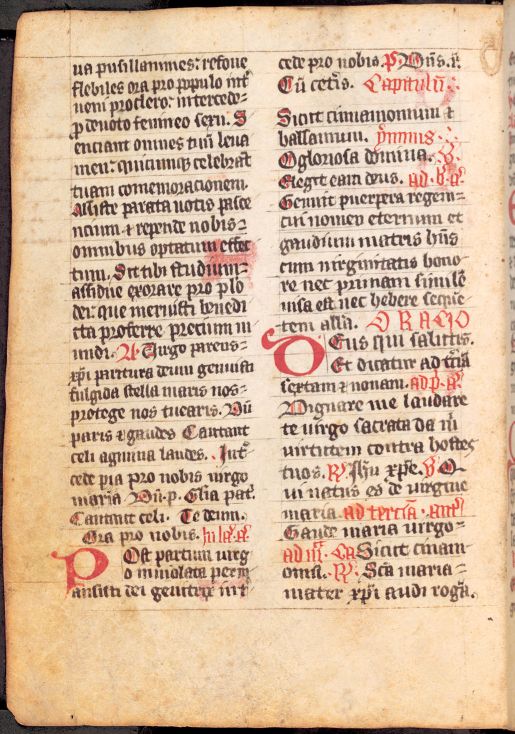 ua pusillanimes: refoue
flebiles ora pro populo int͛
ueni pro clero: intercede-
ꝓ deuoto femineo sexu. S
enciant omnes tuū leua
men: quicumqꝫ celebrāt
tuam comemoracionem.
Assiste parata uotis posce
ncium ⁊ repende nobis-
omnibus optatum effec
tum. Sit tibi studium-
assidue exorare pro plo
dei: que meruisti benedi
cta proferre precium m
undi. A Uirgo parens-
xp̄i partura deum genuisti
fulgida stella maris nos-
protege nos tuearis. Dū
paris ⁊ gaudes Cantant
celi agmina laudes. Int͛
cede pia pro nobis uirgo
maria Dū .p. Glia pat͛.
Cantant celi. Te deum.
Ora pro nobis. In la. a͛.
Post partum uirg
o inuiolata perm
ansisti dei genitrix int͛
cede pro nobis. P. Dn̄s. r̄.
Cū cet͛is. Capitulū.
Sicut cinnamomum ⁊
balsamum. ymnus
O gloriosa domina. V.
Elegit eam deus. ad .b. a͛.
Genuit puerpera regem
cui nomen eternum et
gaudium matris hn̄s
cum uirginitatis hono
re nec primam simile̅
uisa est nec habere seque̅
tem alla. ORACIO
Deus qui salutis.
Et dicatur ad tc̄iā
sextam ⁊ nonam. ad .p. a͛.
Dignare me laudare
te uirgo sacrata da m̄
uirtutem contra hostes
tuos. R. Ihū xp̄e. V Q
ui natus es de uirgine
maria. ad terciā. ant͛
Gaude maria uirgo-
ad . Ca Sicut cinam
omū. R. Sc̄a maria-
mater xp̄i audi roga.